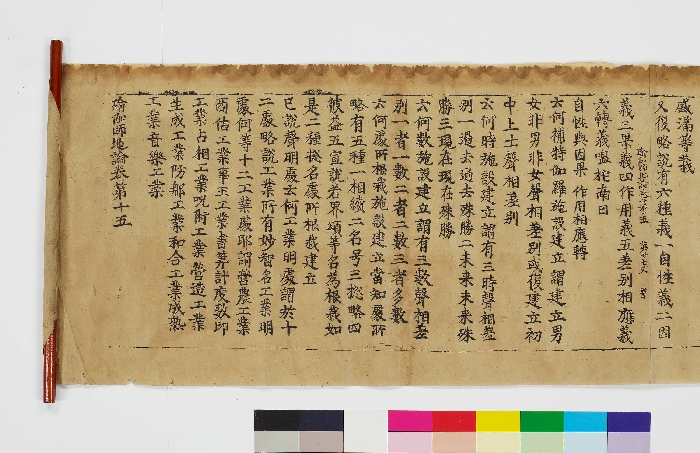 盛滿等哉
又復略說有六種義一自性義二因
義三果義四作用義五差別相應義
六轉義嗢柁南曰
自性與因果 作用相應轉
云何補特伽羅施設建立謂建立男
女非男非女聲相差別或復建立初
中上士聲相差別
云何時施設建立謂有三時聲相差
別一過去過去殊勝二未來未來殊
勝三現在現在殊勝
云何數施設建立謂有三數聲相差
別一者一數二者二數三者多數
云何處所根栽施設建立當知處所
略有五種一相續二名号三揔略四
彼益五宣說若界頌等名為根栽如
是二種揔名處所根栽建立
已說聲明處云何工業明處謂於十
二處略說工業所有妙智名工業明
處何等十二工業處耶謂營農工業
商估工業事王工業書筭計度數印
工業占相工業呪術工業營造工業
生成工業防那工業和合工業成熟
工業音樂工業
瑜伽師地論卷第十五